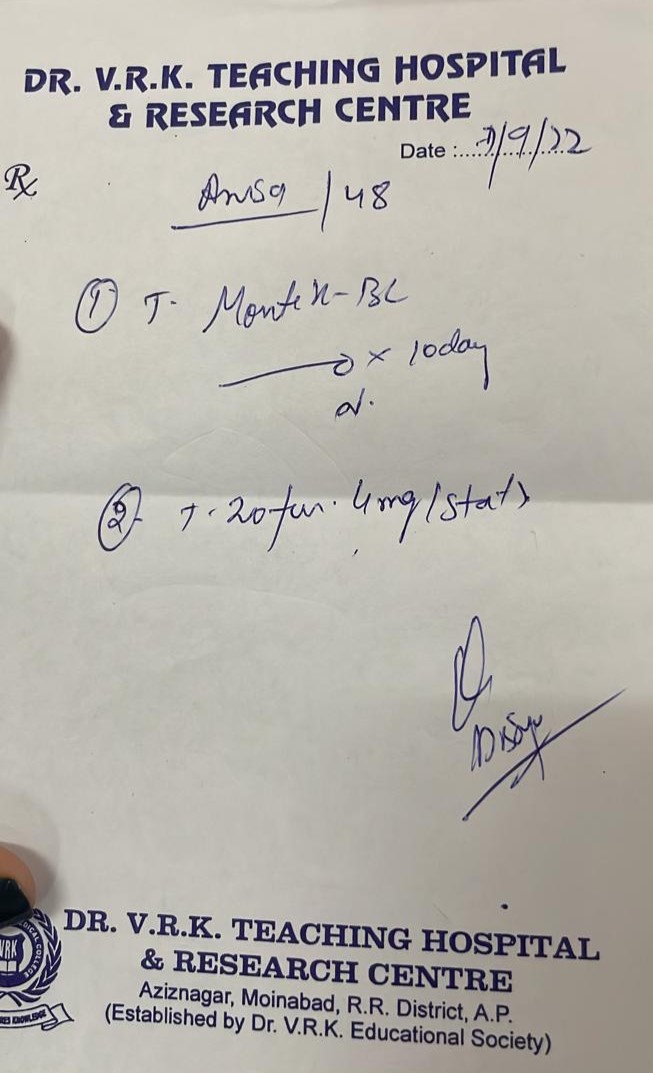 DR. V.R.K. TEACHING HOSPITAL
& RESEARCH CENTRE
Date :....7/9/22
Rx
/ 48
① T. Montek-BC
x 10day
② T. 20fur. 4mg (stat)
VRK
DR. V.R.K. TEACHING HOSPITAL
& RESEARCH CENTRE
Aziznagar, Moinabad, R.R. District, A.P.
(Established by Dr. V.R.K. Educational Society)